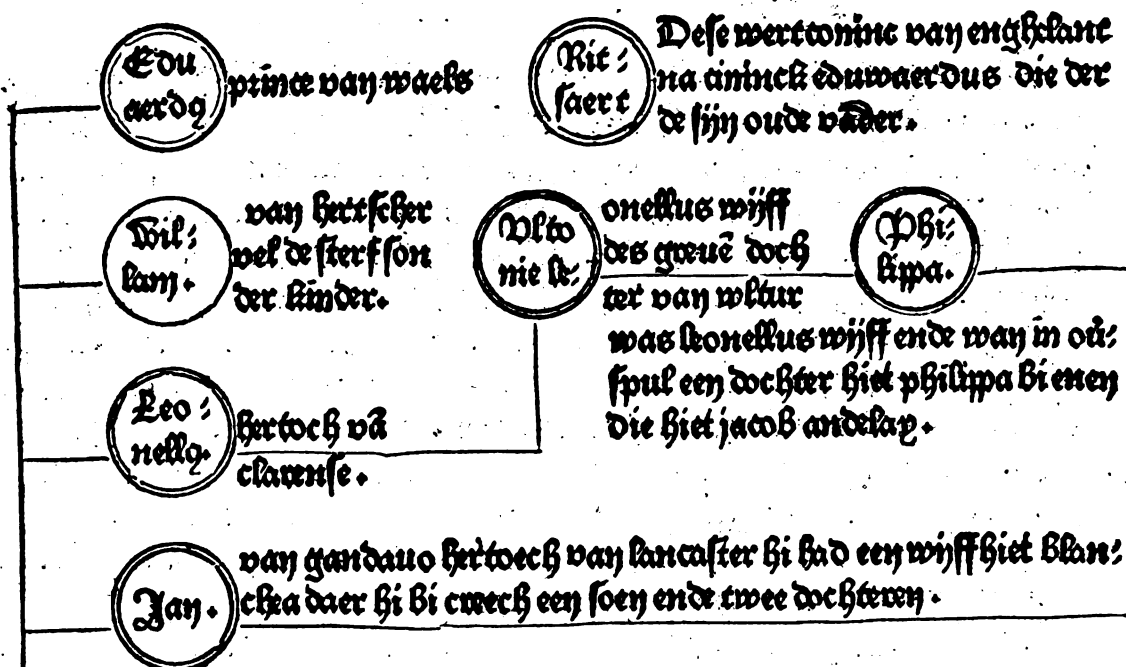 Edu
aerdꝯ
prince van waels
Rit⸗
saert
Dese wert coninc van enghelant
na cininck eduwaerdus die der
de sijn oude vader.
Wil⸗
lam.
van hertscher
vel de sterf son
der kinder.
Vlto
nie le⸗
onellus wijff
des greuē doch
ter van vltur
was leonellus wijff ende wan in ou⸗
spul een dochter hiet philippa bi enen
die hiet jacob andelay.
Phi⸗
lippa.
Leo⸗
nellꝯ.
hertoch vā
clarense.
Jan.
van gandauo hertoech van lancaster hi had een wijff hiet blan⸗
chea daer hi bi creech een soen ende twee dochteren.